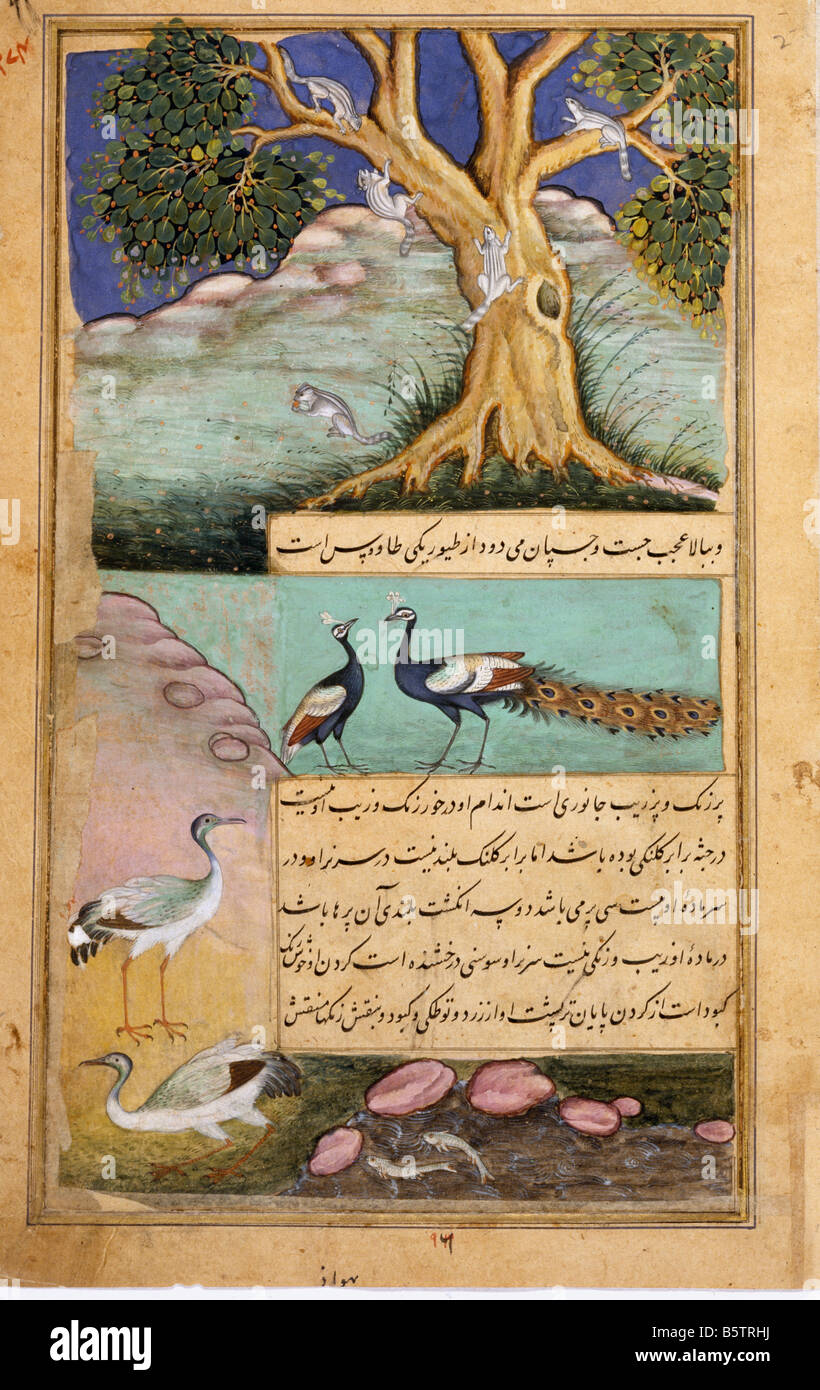 وببالا عجب جست و چسپان می دود از طیور یکی طاووس است
پررنک و پرزیب جانوری است اندام او درخور رنک و زیب او نیست
درجثه برابر کلنکی بوده باشد اما برابر کلنک بلند نیست در سر نر او و در
سر مادهٔ او بیست سی پر می باشد دو سه انکشت بلندی آن پرها باشد
در مادهٔ او زیب و رنکی نیست سر نر او سوسنی درخشنده است کردن او خوش رنک
کبود است از کردن پایان تر پشت او از زرد و طوطکی و کبود و بنفش رنکها منقش
alamy
Image ID: B5TRHJ
www.alamy.com